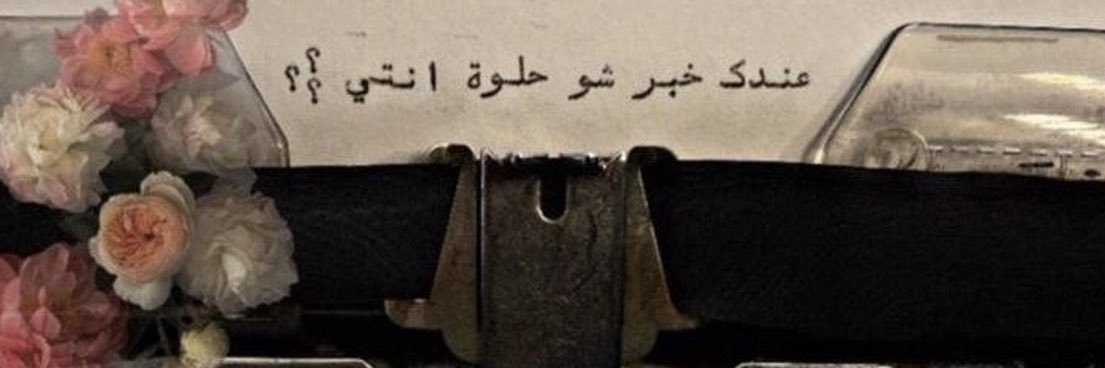 عندك خبر شو حلوة انتي ؟؟؟